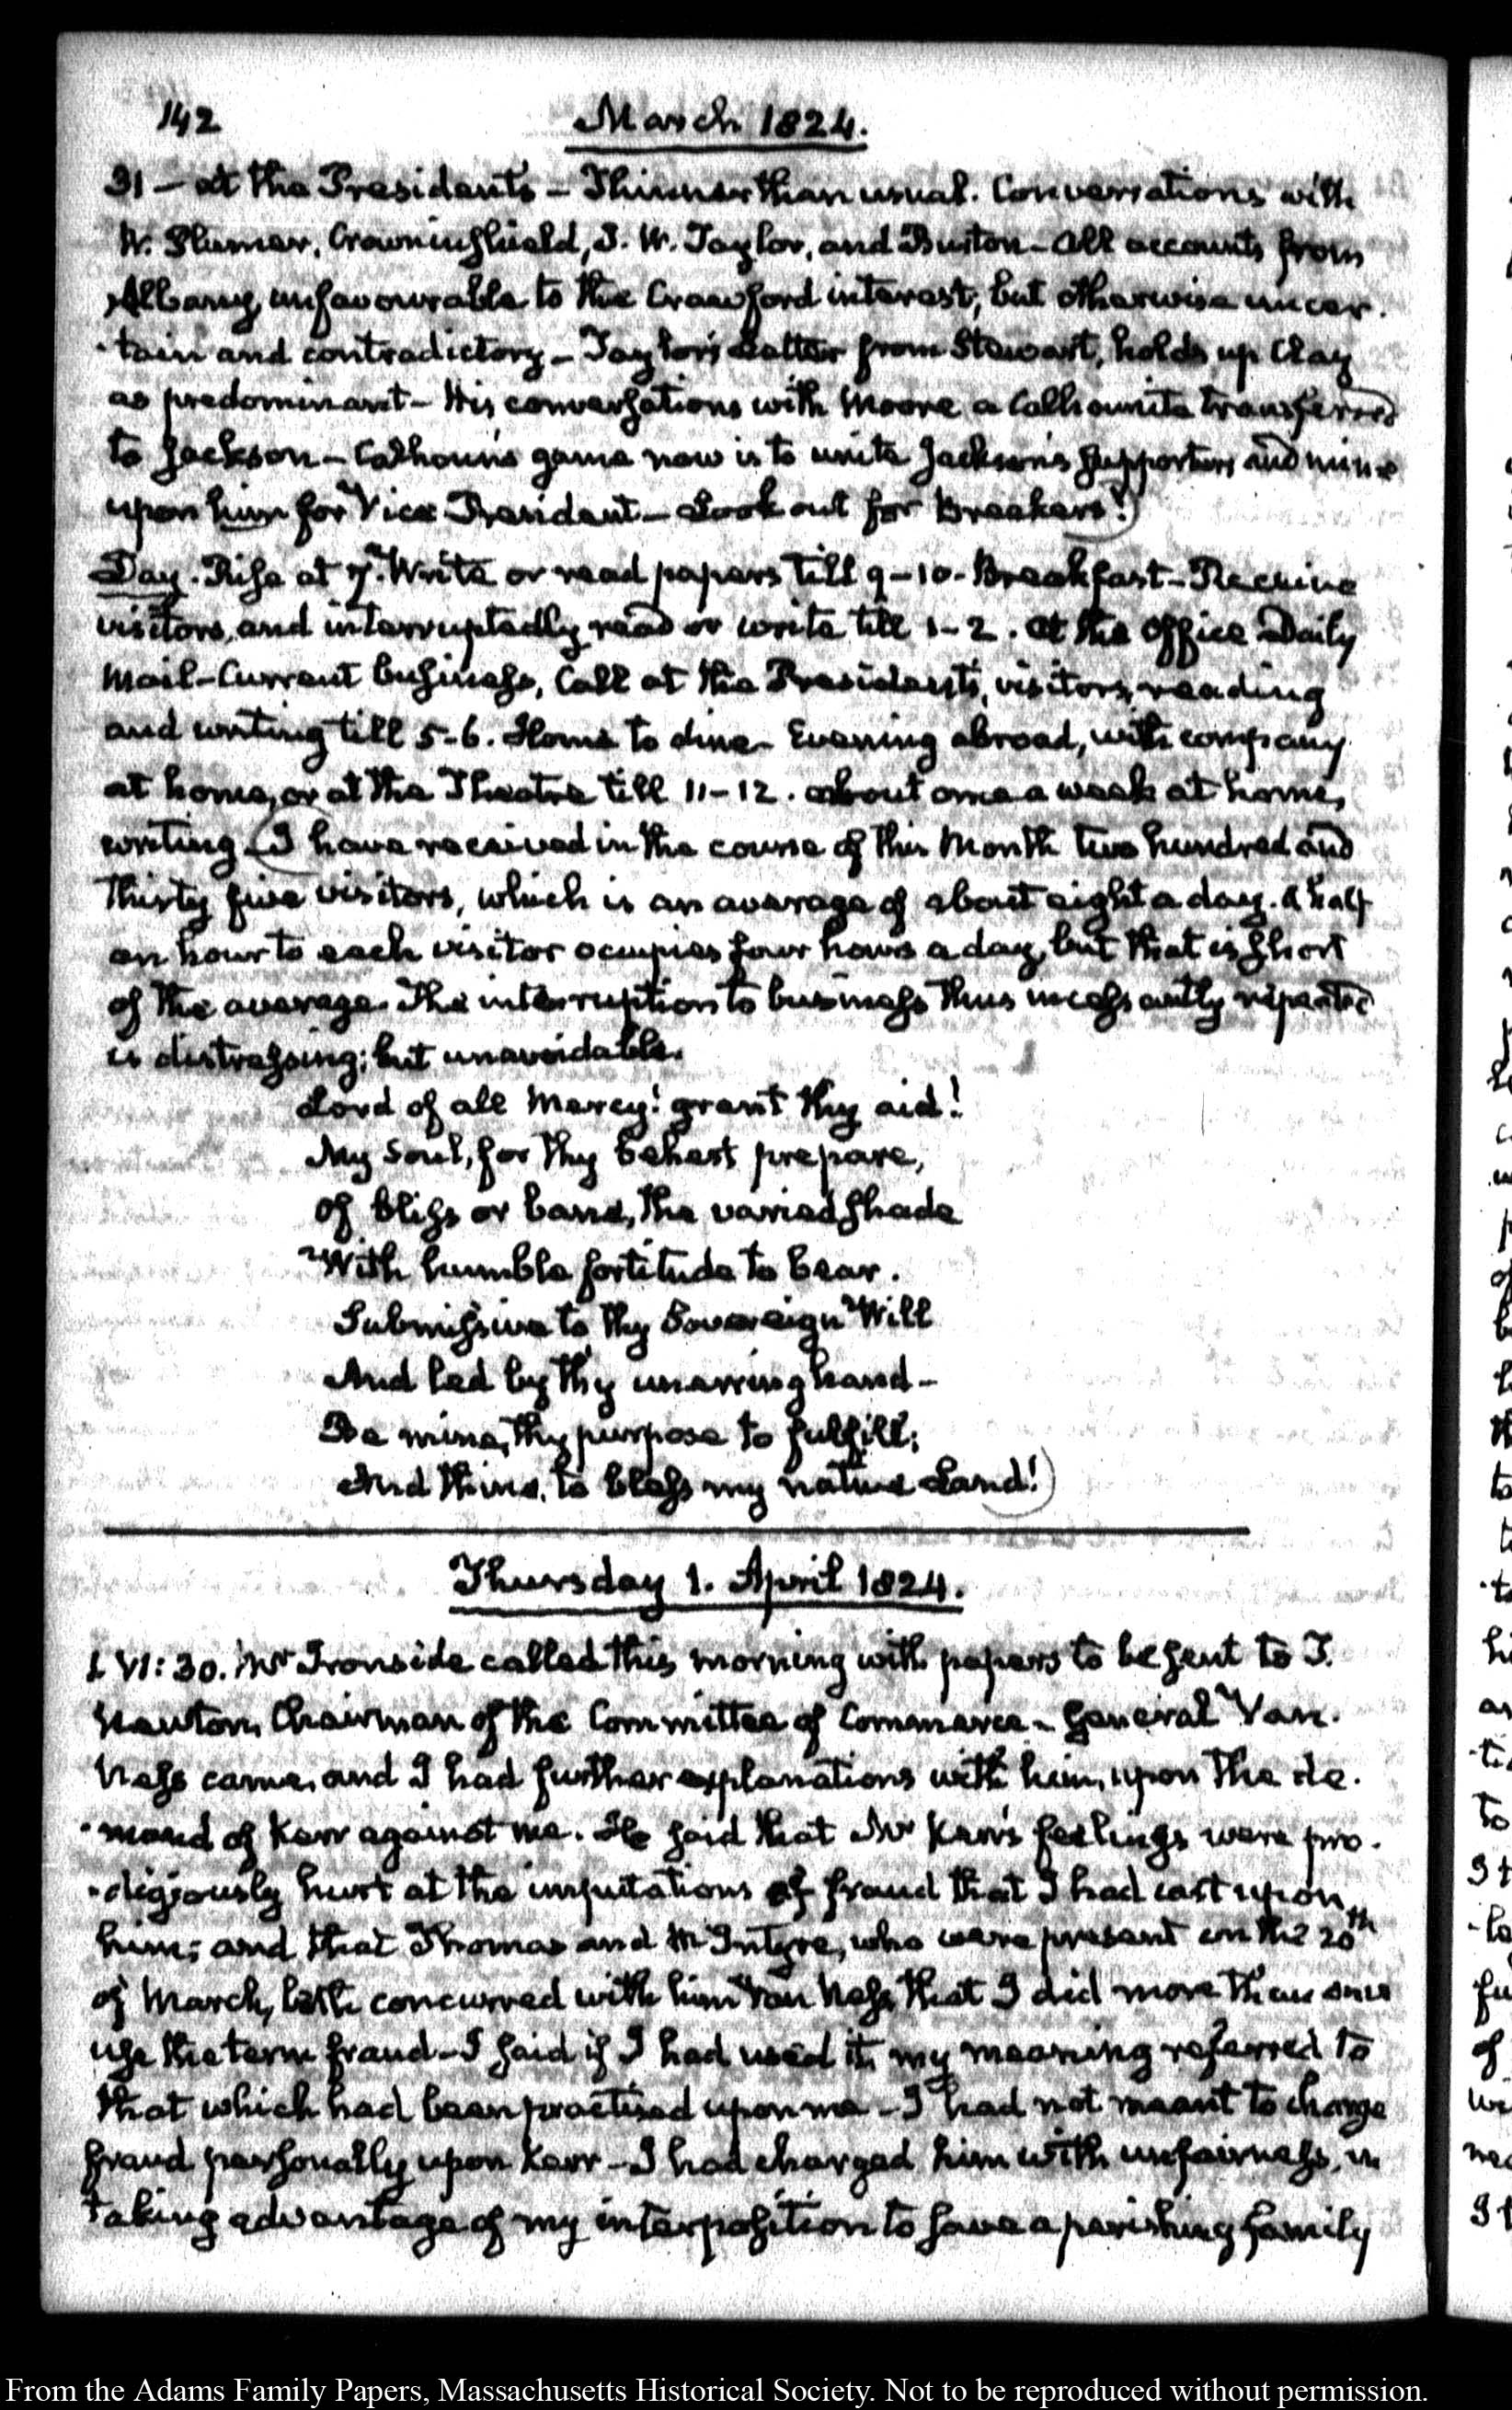 142
March 1824.
31 — at the President's — Thinner than usual. Conversations with
W. Plumer, Crowninshield, J. W. Taylor, and Burton — All accounts from
Albany, unfavourable to the Crawford interest; but otherwise uncer-
-tain and contradictory — Taylor's Letter from Stewart, holds up Clay
as predominant — His conversations with Moore a Calhounite transferred
to Jackson — Calhoun's game now is to unite Jackson's supporters and mine
upon him for Vice President — Look out for Breakers!)
Day. Rise at 7. Write or read papers till 9-10. Breakfast — Receive
visitors, and interruptedly read or write till 1-2. at the Office Daily
Mail — Current business, Call at the President's, visitors, reading
and writing till 5-6. Home to dine — Evening abroad, with company
at home, or at the Theatre till 11-12. about once a week at home,
writing. (I have received in the course of this Month two hundred and
thirty five visitors, which is an average of about eight a day. A half
an hour to each visitor occupies four hours a day, but that is short
of the average. The interruption to business thus incessantly repeated
is distressing; but unavoidable.
Lord of all Mercy! grant thy aid!
My Soul, for thy behest prepare,
Of bliss or bane, the varied shade
With humble fortitude to bear.
Submissive to thy Sovereign Will
And led by thy unerring hand —
Be mine, thy purpose to fulfill;
And thine, to bless my native Land!)
Thursday 1. April 1824.
1. VI: 30. Mr Ironside called this morning with papers to be sent to T.
Newton, Chairman of the Committee of Commerce — General Van-
Ness came, and I had further explanations with him, upon the de-
-mand of Kerr against me. He said that Mr Kerr's feelings were pro-
-digiously hurt at the imputations of fraud that I had cast upon
him; and that Thomas and McIntyre, who were present on the 20th
of March, both concurred with him Van Ness, that I did more than once
use the term fraud — I said if I had used it, my meaning referred to
that which had been practised upon me — I had not meant to charge
fraud personally upon Kerr — I had charged him with unfairness, in
taking advantage of my interposition to save a perishing family